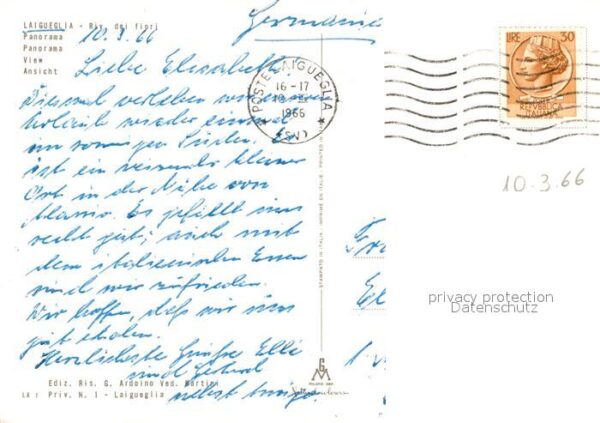 LAIGUEGLIA - Riv. dei fiori
Panorama
Panorama
View
Ansicht
Germania
10.3.66
Liebe Elisabeth!
Diesmal verleben wir unseren
Urlaub wieder einmal
im sonnigen Süden. Es
ist ein reizender kleiner
Ort in der Nähe von
Alassio. Es gefällt uns
recht gut; auch mit
dem italienischen Essen
sind wir zufrieden.
Wir hoffen, daß wir uns
gut erholen.
Herzlichste Grüße Elli
und Gerhard
nebst
Ediz. Ris. G. Ardoino Ved. Martini
LA 1 Priv. N. 1 - Laigueglia
POSTE LAIGUEGLIA
16-17
1966
(SV)
LIRE 30
REPVBBLICA
ITALIANA
10.3.66
STAMPATO IN ITALIA - IMPRIMÉ EN ITALIE - PRINTED
Fr
El
privacy protection
Datenschutz